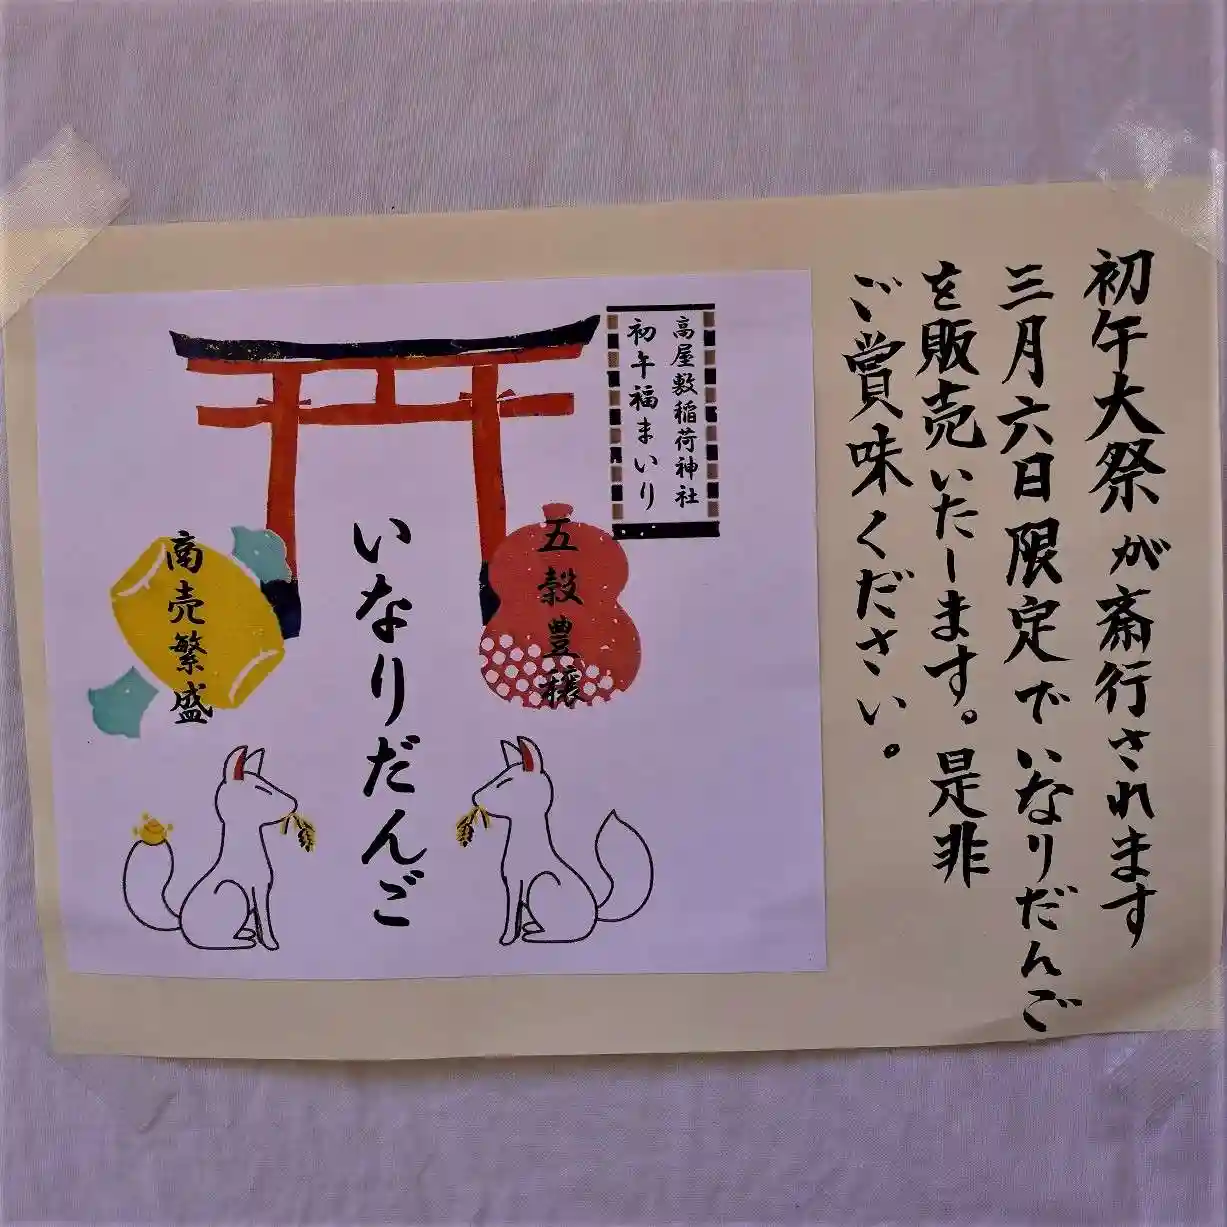 初午大祭が斎行されます
三月六日限定でいなりだんご
を販売いたします。是非
ご賞味ください。
高屋敷稲荷神社
初午福まいり
五穀豊穣
いなりだんご
商売繁盛